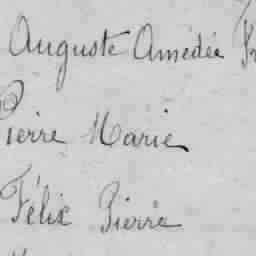 Auguste Amédée
Pierre Marie
Félix Pierre